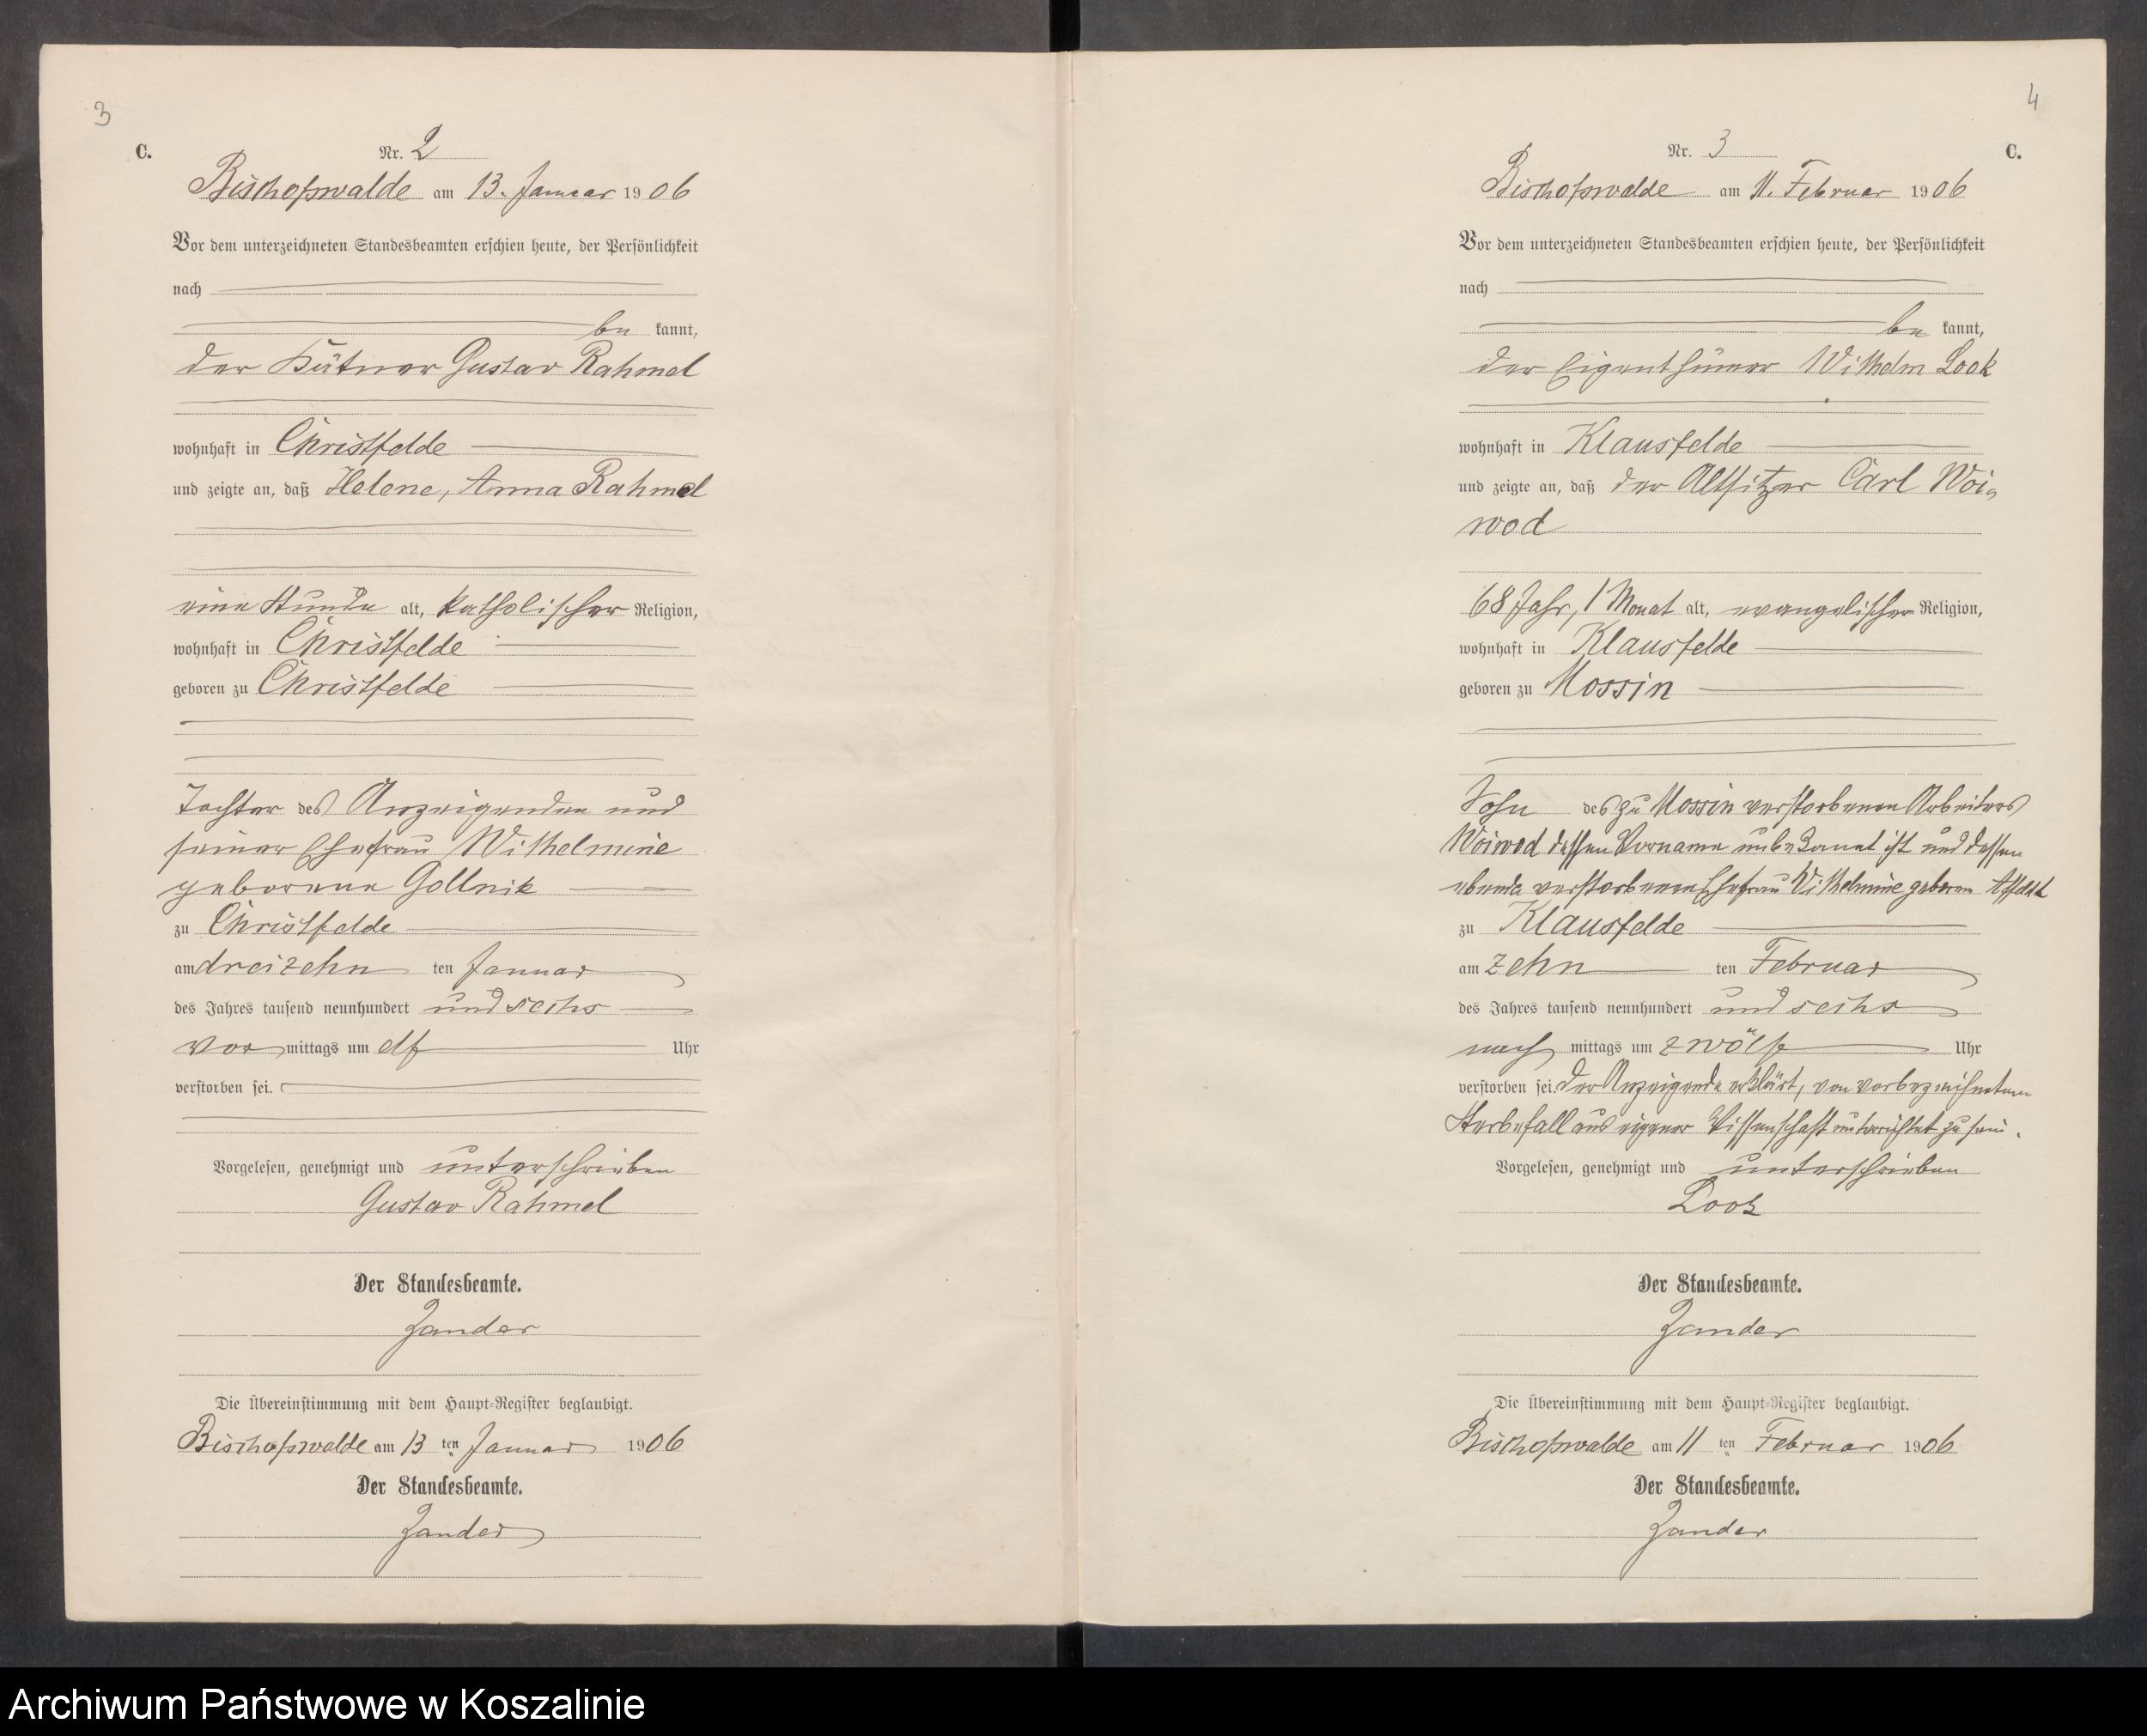 3
C.
Nr. 2
Bischofswalde am 13. Januar 1906
Vor dem unterzeichneten Standesbeamten erschien heute, der Persönlichkeit
nach
be kannt,
der Kätner Gustav Rahmel
wohnhaft in Christfelde
und zeigte an, daß Helene, Anna Rahmel
eine Stunde alt, katholischer Religion,
wohnhaft in Christfelde
geboren zu Christfelde
Tochter des Anzeigenden und
seiner Ehefrau Wilhelmine
geborene Gollnik
zu Christfelde
am dreizehn ten Januar
des Jahres tausend neunhundert und sechs
vor mittags um elf Uhr
verstorben sei.
Vorgelesen, genehmigt und unterschrieben
Gustav Rahmel
Der Standesbeamte.
Zander
Die Übereinstimmung mit dem Haupt-Register beglaubigt.
Bischofswalde am 13 ten Januar 1906
Der Standesbeamte.
Zander
4
Nr. 3
C.
Bischofswalde am 11. Februar 1906
Vor dem unterzeichneten Standesbeamten erschien heute, der Persönlichkeit
nach
be kannt,
der Eigenthümer Wilhelm Look
wohnhaft in Klausfelde
und zeigte an, daß der Altsitzer Carl Woi-
wod
68 Jahr, 1 Monat alt, evangelischer Religion,
wohnhaft in Klausfelde
geboren zu Mossin
Sohn des zu Mossin verstorbenen Arbeiters
Woiwod dessen Vorname unbekannt ist und dessen
ebenda verstorbenen Ehefrau Wilhelmine geboren Affeldt
zu Klausfelde
am zehn ten Februar
des Jahres tausend neunhundert und sechs
nach mittags um zwölf Uhr
verstorben sei. Der Anzeigende erklärt, von vorbezeichnetem
Sterbefall aus eigener Wissenschaft unterrichtet zu sein.
Vorgelesen, genehmigt und unterschrieben
Look
Der Standesbeamte.
Zander
Die Übereinstimmung mit dem Haupt-Register beglaubigt.
Bischofswalde am 11 ten Februar 1906
Der Standesbeamte.
Zander
Archiwum Państwowe w Koszalinie